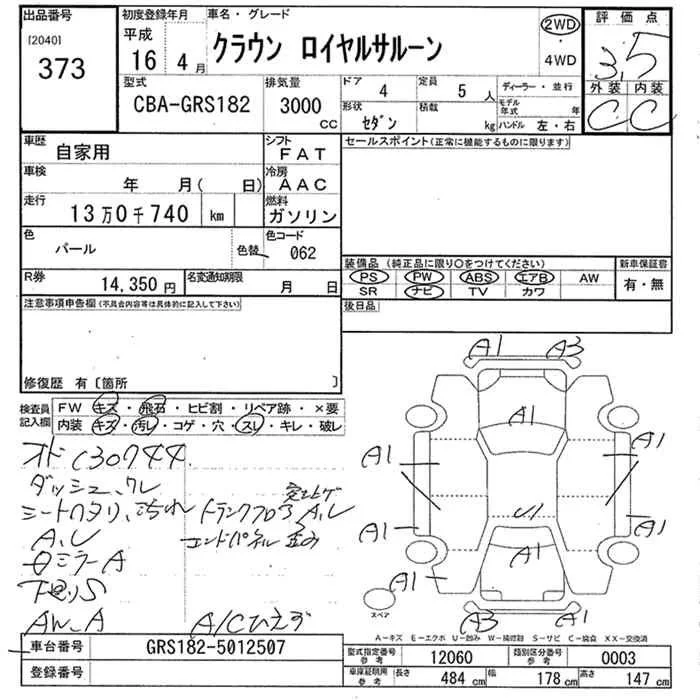 出品番号
[2040]
373
初度登録年月
平成
16 4月
車名・グレード
クラウン ロイヤルサルーン
2WD
・
4WD
評価点
3.5
外装 内装
C C
型式
CBA-GRS182
排気量
3000
CC
ドア 4
定員 5 人
形状 セダン
積載 kg
ディーラー・並行
モデル年式 年
ハンドル 左・右
車歴
自家用
シフト
FAT
車検
年 月( 日)
冷房
AAC
走行
13万0千740 km
燃料
ガソリン
色
パール
色替
色コード
062
R券
14,350円
名変通知期限
月 日
注意事項申告欄(不具合内容等は具体的に記入して下さい)
修復歴 有〔箇所 〕
セールスポイント(正常に機能するものに限ります)
装備品(純正品に限り○をつけてください)
PS PW ABS エアB AW
SR ナビ TV カワ
新車保証書
有・無
後日品
検査員記入欄
FW キズ・飛石・ヒビ割・リペア跡・×要
内装 キズ・汚レ・コゲ・穴・スレ・キレ・破レ
オド130744
シートヘタリ、汚れ
トランクフロア A、U
エンドパネル歪み
A、U
ロミラーA
下廻りS
AW、A
A/Cひえず
A1 A3
A1
A1 A1
U
A1 A1
A1
A1
A3 A1
スペア
A-キズ E-エクボ U-凹み W-補修跡 S-サビ C-腐食 XX-交換済
車台番号
GRS182-5012507
登録番号
型式指定番号
参考
12060
類別区分番号
参考
0003
車庫証明用
参考
長さ 484 cm
幅 178 cm
高さ 147 cm